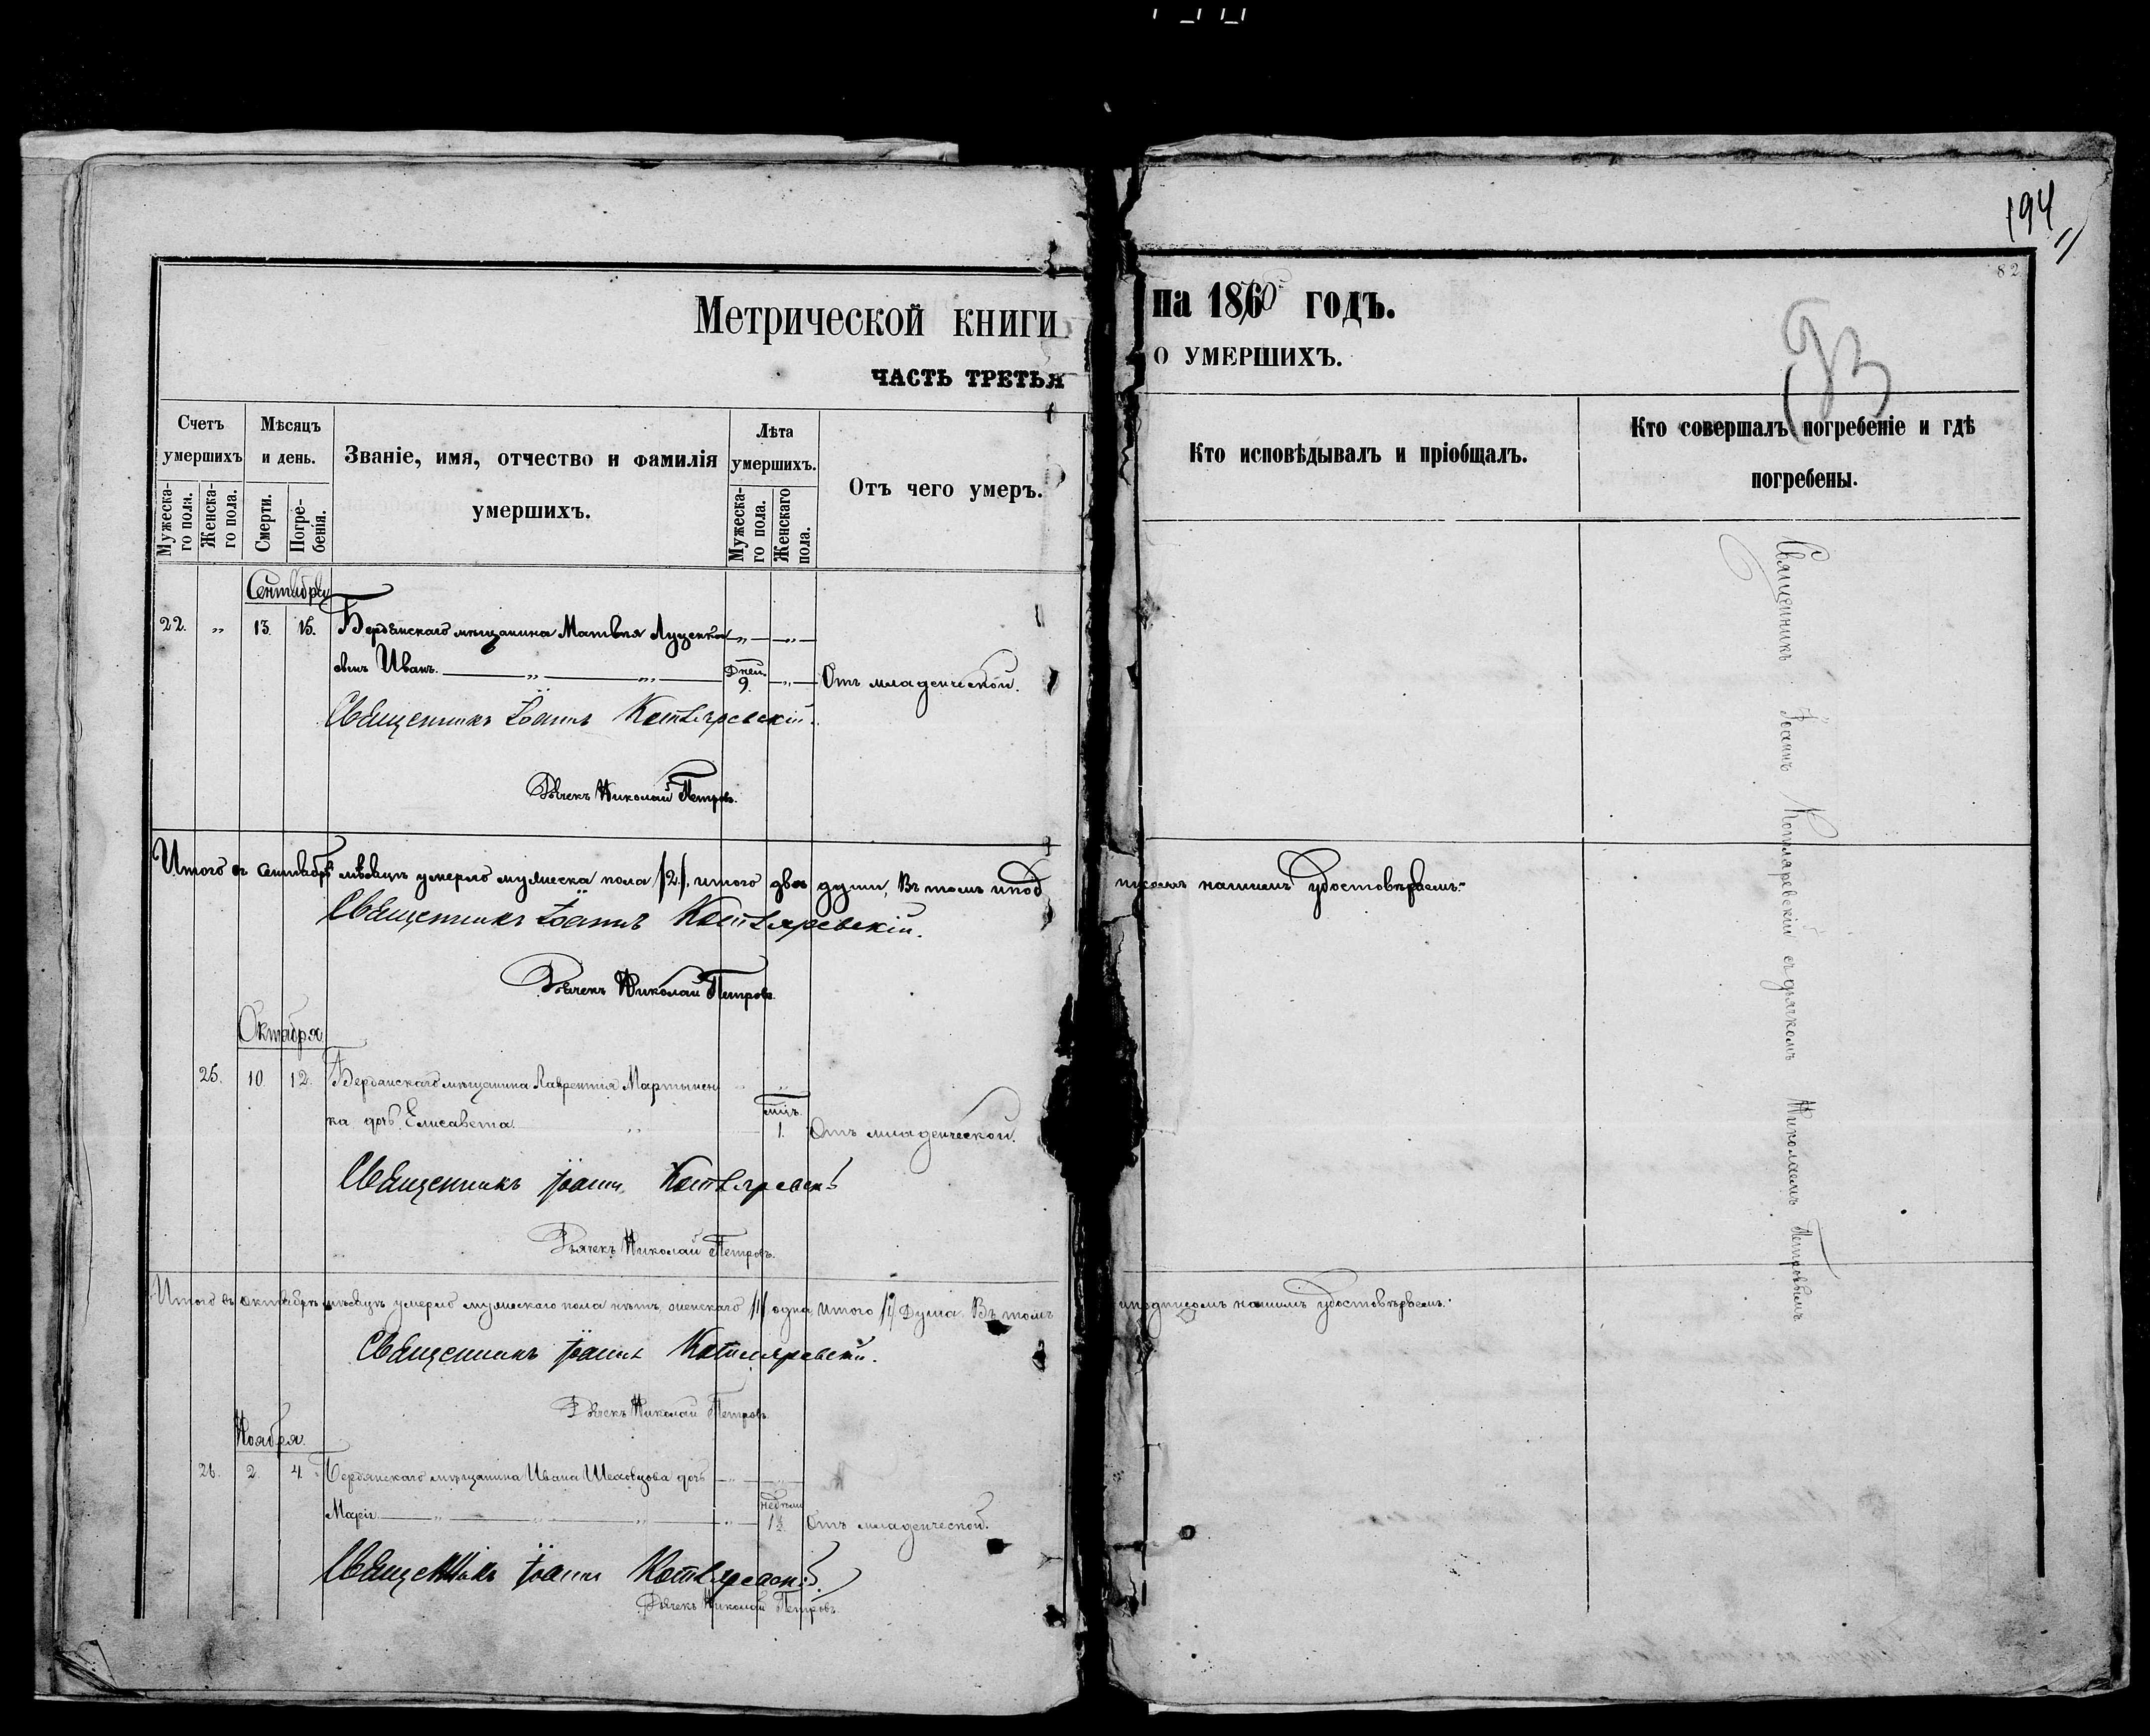 194
82
Метрической книги на 1870 годъ.
ЧАСТЬ ТРЕТЬЯ О УМЕРШИХЪ.
Счетъ умершихъ
Мѣсяцъ и день.
Званіе, имя, отчество и фамилія умершихъ.
Лѣта умершихъ.
Отъ чего умеръ.
Кто исповѣдывалъ и пріобщалъ.
Кто совершалъ погребеніе и гдѣ погребены.
Мужеска-го пола.
Женска-го пола.
Смерти.
Погре-бенія.
Мужеска-го пола.
Женскаго пола.
Сентября
22. „ 13. 15. Бердянскаго мѣщанина Матвѣя Луценка „ „
сынъ Иванъ. „ „ Дней 9. „ Отъ младенческой.
Священникъ Іоаннъ Котляревскій.
Дьячекъ Николай Петровъ.
Итого въ сентябрѣ мѣсяцѣ умерло мужеска пола /2/, итого двѣ души, Въ томъ и под писомъ нашимъ удостовѣряемъ:
Священникъ Іоаннъ Котляревскій.
Дьячекъ Николай Петровъ.
Октября
25. 10. 12. Бердянскаго мѣщанина Лаврентія Мартынен „
ка дочь Елисавета „ 1. Отъ младенческой.
Священникъ Іоаннъ Котляревскій
Дьячекъ Николай Петровъ.
Итого въ октябрѣ мѣсяцѣ умерло мужескаго пола нѣтъ, женскаго /1/ одна итого /1/ душа. Въ томъ и подписомъ нашимъ удостовѣряемъ:
Священникъ Іоаннъ Котляревскій.
Дьячекъ Николай Петровъ.
Ноября.
26. 2. 4. Бердянскаго мѣщанина Ивана Шеховцова дочь „ „
Марія „ „ „ „ недѣли 1½. Отъ младенческой.
Священникъ Іоаннъ Котляревскій.
Дьячекъ Николай Петровъ.
Священникъ Іоаннъ Котляревскій съ дьячкомъ Николаемъ Петровымъ